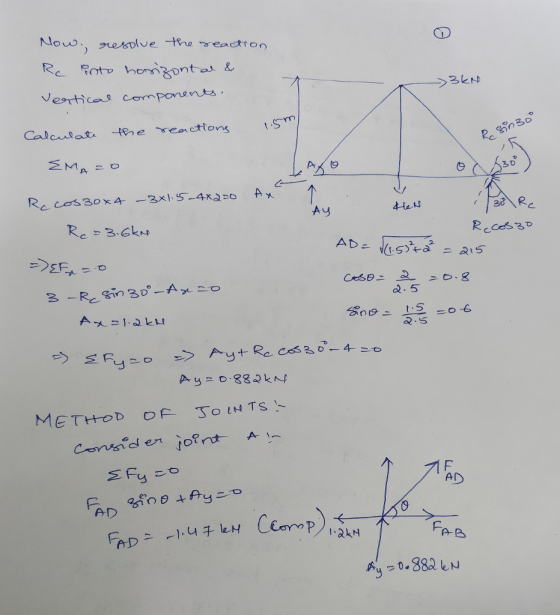 ①
Now, resolve the reaction
Rc into horizontal &
vertical components.
Calculate the reactions
ΣM_A = 0
Rc cos30×4 -3×1.5-4×2=0
Rc = 3.6kN
=>ΣFx = 0
3 - Rc sin30° - Ax = 0
Ax = 1.2kN
=> ΣFy=0 => Ay + Rc cos30° - 4 = 0
Ay = 0.882kN
3kN
1.5m
A
θ
θ
Rc sin30°
30°
Ax
Ay
4kN
30°
Rc
Rc cos30
AD = √(1.5)²+2² = 2.5
cosθ = 2/2.5 = 0.8
sinθ = 1.5/2.5 = 0.6
METHOD OF JOINTS :-
Consider joint A :-
ΣFy = 0
F_AD sinθ + Ay = 0
F_AD = -1.47 kN (comp)
F_AD
θ
1.2kN
F_AB
Ay = 0.882kN